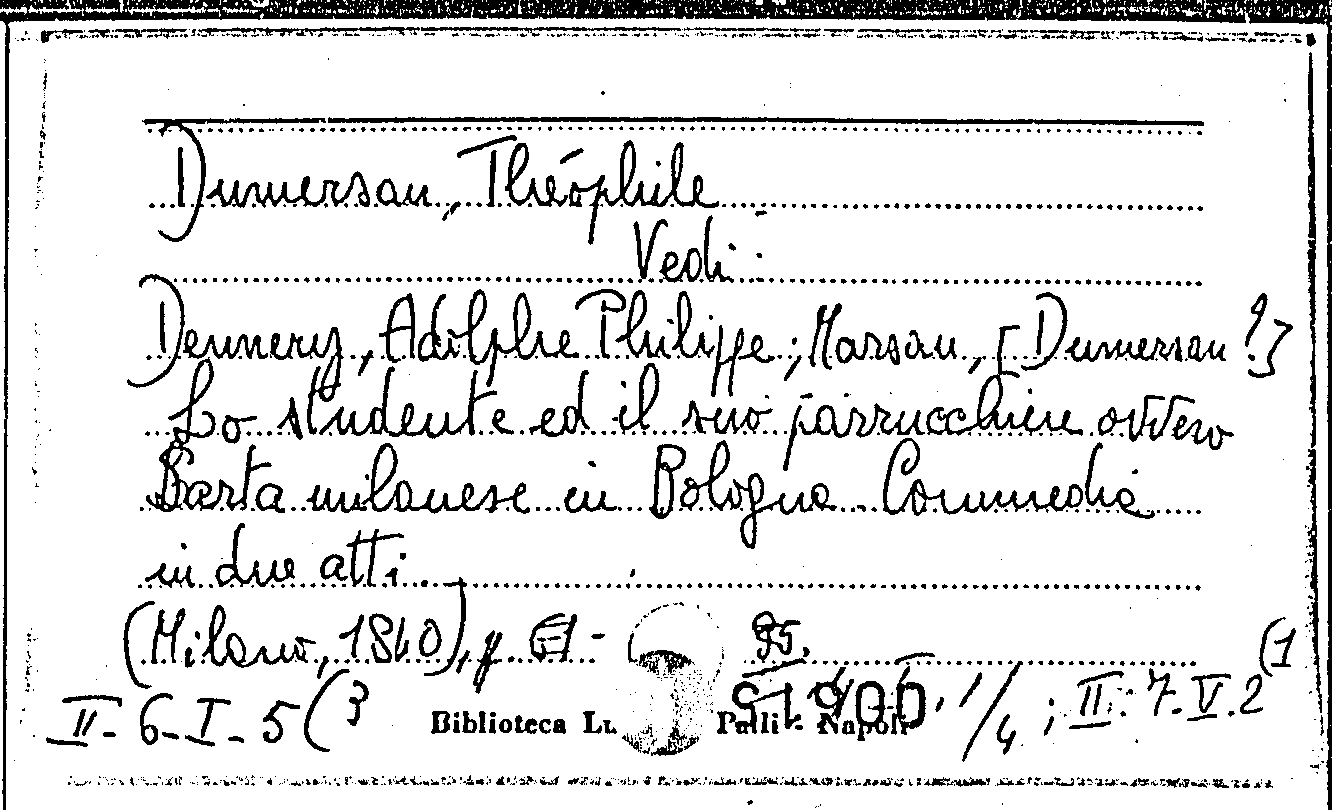 Dumersan, Théophile
Vedi:
Dennery, Adolphe Philippe; Marsan, [Dumersan?]
Lo studente ed il suo parrucchiere ovvero
Barta milanese in Bologna. Commedia
in due atti.
(Milano, 1840), p. 61- 95.
(1
II-6-I-5(3 Biblioteca Lu. Palli - Napoli 51900 1/4; II.7.V.2